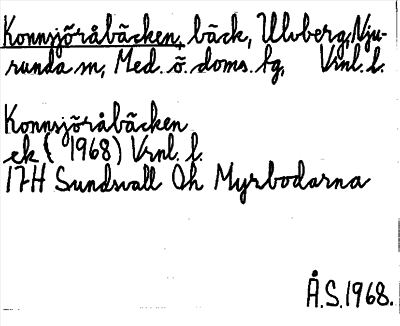 Konnsjöråbäcken, bäck, Ulvberg, Nju-
runda sn, Med. ö. doms. hg, Vrnl. l.
Konnsjöråbäcken
ek (1968) Vrnl. l.
17H Sundsvall Oh Myrbodarna
Å.S. 1968.